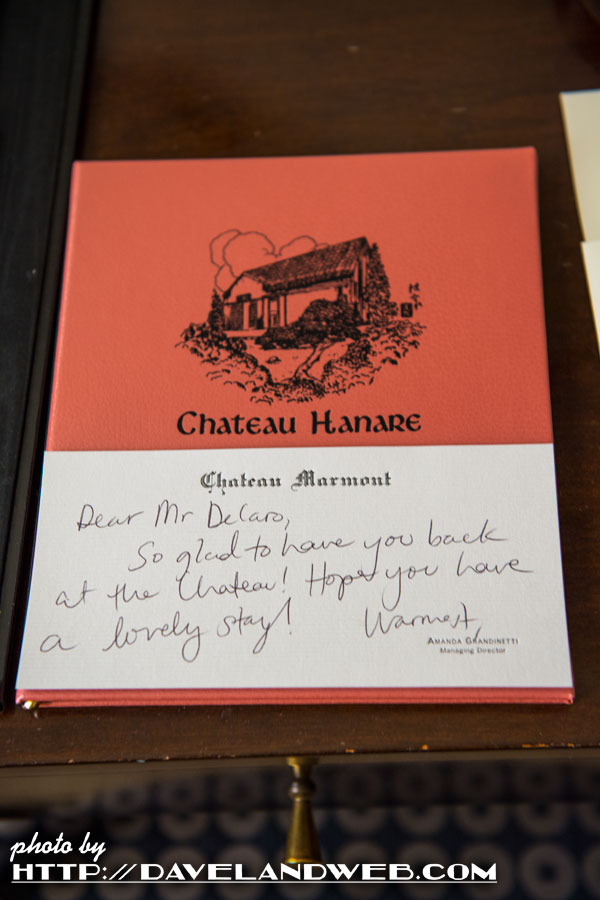 Chateau Hanare
Chateau Marmont
Dear Mr DeCaro,
So glad to have you back
at the Chateau! Hope you have
a lovely stay!
Warmest,
AMANDA GRANDINETTI
Managing Director
photo by
HTTP://DAVELANDWEB.COM